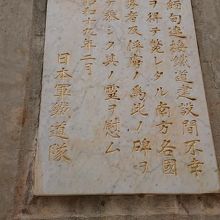 緬甸連接鐵道建設間不幸
ヲ得テ斃レタル南方各國
務者及俘虜ノ為此ノ碑ヲ
テ恭シク其ノ霊ヲ慰ム
和十九年二月
日本軍鐵道隊